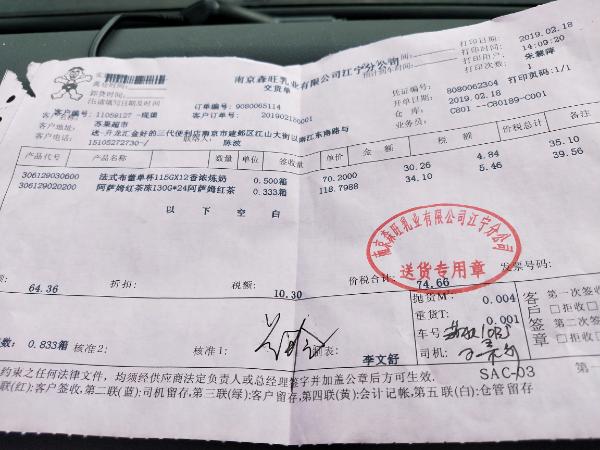 南京森旺乳业有限公司江宁分公司
交货单
打印日期: 2019.02.18
打印时间: 14:09:20
打印用户:
打印次数: 1
卸货时间:
出请填写日期及时间
订单编号: 9080065114
凭证编号: 8080062304 打印页码:1/1
客户编号: 11059127
客户订单号: 20190218G001
开单日期: 2019.02.18
客户地址: 苏果超市
仓库: C801 --C80189-C001
送-升龙汇金好的三代便利店南京市建邺区江山大街以南江东南路与
业务员:
客户电话: 15105272730-/ 联络人: 陈波
产品代号 产品名称 数量 单位 签收量 单价 金额 税额 价税总计
306129030600 法式布蕾单杯115GX12香浓炼奶 0.500箱 70.2000 30.26 4.84 35.10
306129020200 阿萨姆红茶冻130G*24阿萨姆红茶 0.333箱 118.7988 34.10 5.46 39.56
以下空白
南京森旺乳业有限公司江宁分公司
送货专用章
64.36 折扣: 税额: 10.30 价税合计: 74.66 发票号码:
抛货M³: 0.004
重货T: 0.001
车号
司机:
客户签章
第一次签收
拒收
第二次签
拒收
数: 0.833箱 核准2: 核准1: 制表: 李文舒
约束之任何法律文件,均须经供应商法定负责人或总经理签字并加盖公章后方可生效. SAC-03
联(红):客户签收,第二联(蓝):司机留存,第三联(绿):客户留存,第四联(黄):会计记帐,第五联(白):仓管留存